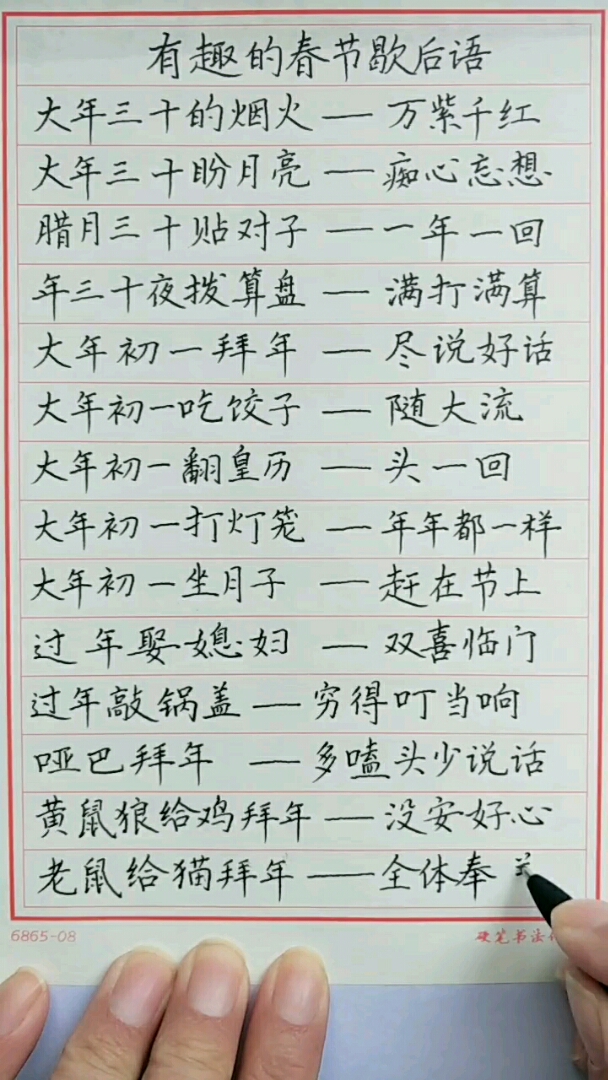 有趣的春节歇后语
大年三十的烟火——万紫千红
大年三十盼月亮——痴心忘想
腊月三十贴对子——一年一回
年三十夜拨算盘——满打满算
大年初一拜年——尽说好话
大年初一吃饺子——随大流
大年初一翻皇历——头一回
大年初一打灯笼——年年都一样
大年初一坐月子——赶在节上
过年娶媳妇——双喜临门
过年敲锅盖——穷得叮当响
哑巴拜年——多嗑头少说话
黄鼠狼给鸡拜年——没安好心
老鼠给猫拜年——全体奉
6865-08 硬笔书法